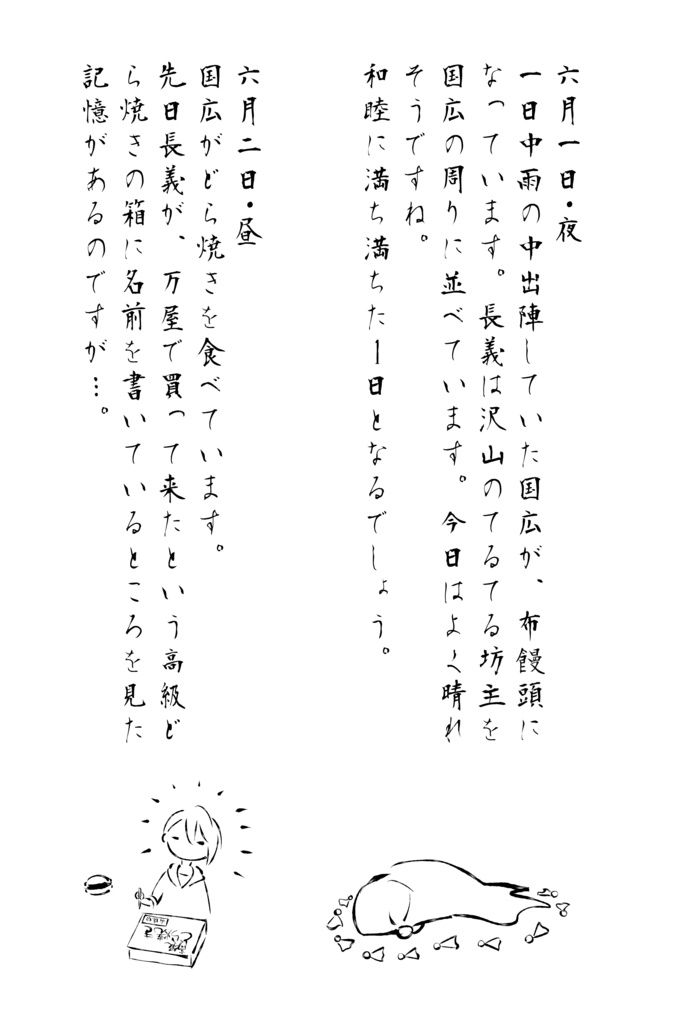 六月一日・夜
一日中雨の中出陣していた国広が、布饅頭に
なっています。長義は沢山のてるてる坊主を
国広の周りに並べています。今日はよく晴れ
そうですね。
和睦に満ち満ちた一日となるでしょう。
六月二日・昼
国広がどら焼きを食べています。
先日長義が、万屋で買って来たという高級ど
ら焼きの箱に名前を書いているところを見た
記憶があるのですが…。
どら焼き